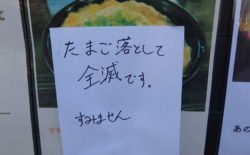 たまご落として
全滅です。
すみません